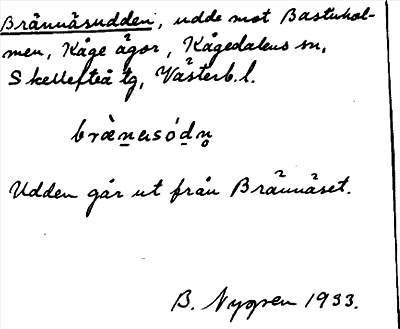 Brännäsudden, udde mot Bastuhol-
men, Kåge ägor, Kågedalens sn,
Skellefteå tg, Västerb. l.
Udden går ut från Brännäset.
B. Nygren 1933.